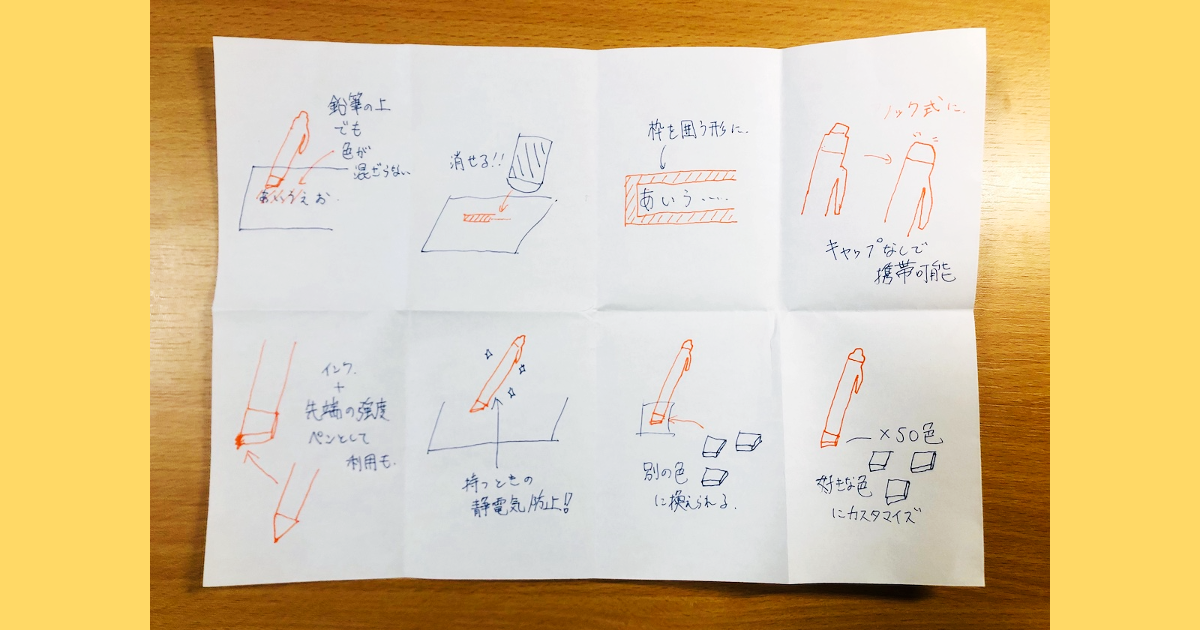 鉛筆の上
でも
色が
混ざらない
あいうえお.
消せる!!
枠を囲う形に.
あいう.....
ノック式に.
キャップなしで
携帯可能
インク.
+
先端の強度
ペンとして
利用も.
持つときの
静電気防止!!
別の色
に換えられる.
×50色
好きな色
にカスタマイズ